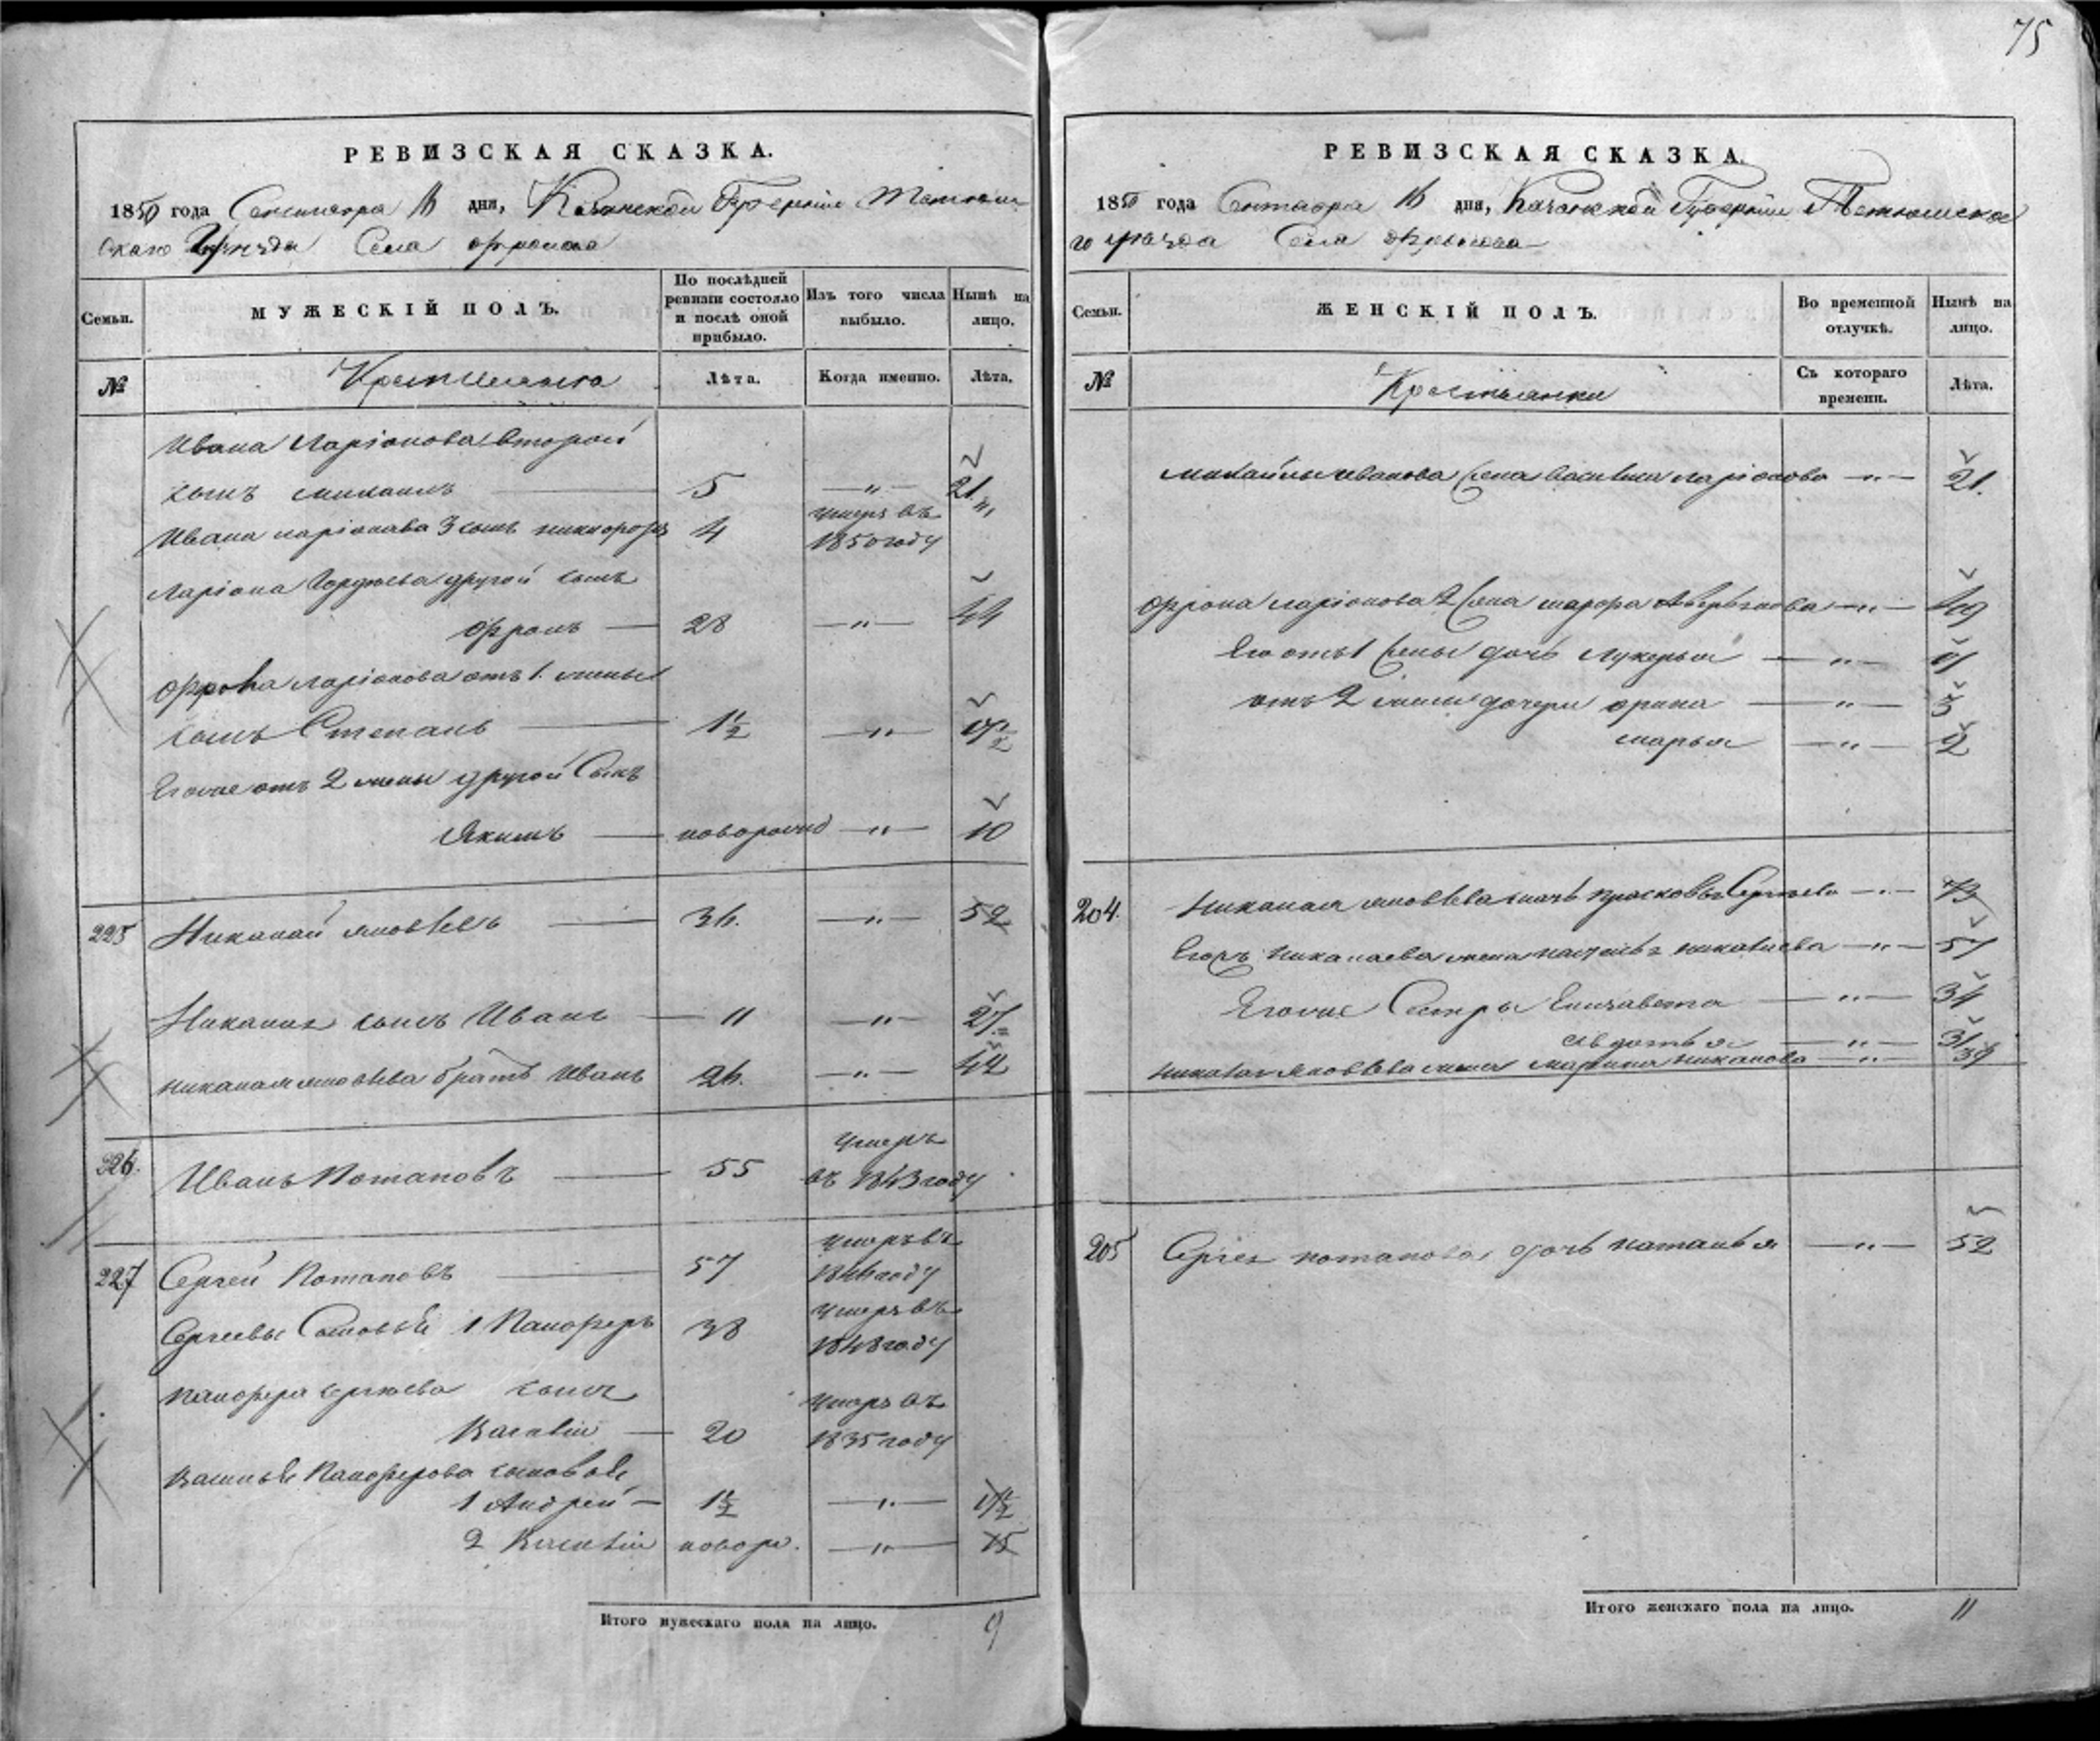 75
РЕВИЗСКАЯ СКАЗКА.
1850 года Сентября 16 дня, Казанской Губернiи Тетюш
скаго Уѣзда Села
Семьи.
МУЖЕСКІЙ ПОЛЪ.
По послѣдней ревизіи состояло и послѣ оной прибыло.
Изъ того числа выбыло.
Нынѣ на лицо.
№
Крестьяна
Лѣта.
Когда именно.
Лѣта.
Ивана Ларіонова второй
сынъ Михаилъ 5 — " — 21
Ивана Ларіонава 3 сынъ Никиөоръ 4 умеръ въ 1850 году
Ларіона Гордѣева другой сынъ
Фролъ 28 — " — 44
Фрола Ларіонова отъ 1. жены
сынъ Степанъ 1½ — " — 17½
Егоже отъ 2 жены другой Сынъ
Якимъ новорожд — " — 10
225 Никалай Яковлевъ 36. — " — 52
Никалая сынъ Иванъ 11 — " — 27
Никалая Яковлева братъ Иванъ 26. — " — 42
226. Иванъ Потаповъ 55 умеръ въ 1843 году
227 Сергей Потаповъ 57 умеръ въ 1846 году
Сергеевы Сыновьѣ 1 Панферъ 38 умеръ въ 1848 году
Панфера Сергѣева сынъ
Василiи 20 умеръ въ 1835 году
Василья Панферова сыновьѣ
1 Андрей 1½ — " — 17½
2 Василiи новорж. — " — 15
Итого мужескаго пола на лицо. 9
РЕВИЗСКАЯ СКАЗКА.
1850 года Сентября 16 дня, Казанской Губернiи Тетюшска
го уѣзда Села
Семьи.
ЖЕНСКІЙ ПОЛЪ.
Во временной отлучкѣ.
Нынѣ на лицо.
№
Крестьянки
Съ котораго времени.
Лѣта.
Михайлы Иванова жена Василиса Ларіонова — " — 21.
Фрола Ларіонова 2 жена Марфа — " — 40
Его отъ 1 жены дочь Лукерья — " —
отъ 2 жены дочери Арина — " — 3
Марья — " — 2
204. Никалая Яковлева мать Прасковья Сергѣева — " — 73
Никалаева жена — " — 57
Егоже Сестры Елизавета — " — 34
Авдотья — " — 31
Никалая Яковлева жена Марина — " — 39
205 Сергея Потапова дочь Наталья — " — 52
Итого женскаго пола на лицо. 11